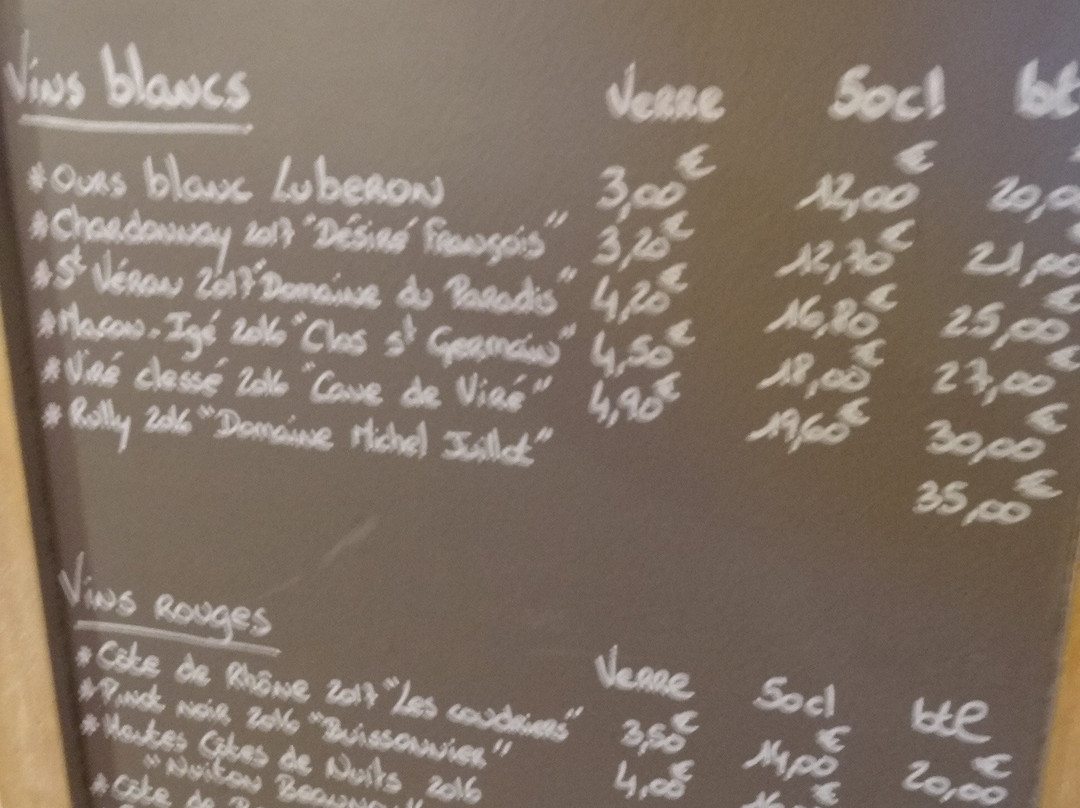 Vins blancs Verre 50cl bt
*Ours blanc Luberon 3,00€ 12,00€ 20,0
*Chardonnay 2017 "Désiré François" 3,20€ 12,70€ 21,00€
*St Véran 2017 "Domaine du Paradis" 4,20€ 16,80€ 25,00€
*Macon-Igé 2016 "Clos st Germain" 4,50€ 18,00€ 27,00€
*Viré clessé 2016 "Cave de Viré" 4,90€ 19,60€ 30,00€
*Rully 2016 "Domaine Michel Juillot" 35,00€
Vins Rouges Verre 50cl btl
*Côte de Rhône 2017 "Les coudriers" 3,50€ 14,00€ 20,00€
*Pinot noir 2016 "Buissonnier" 4,00€ 16
*Hautes Côtes de Nuits 2016
"Nuiton
*Côte de